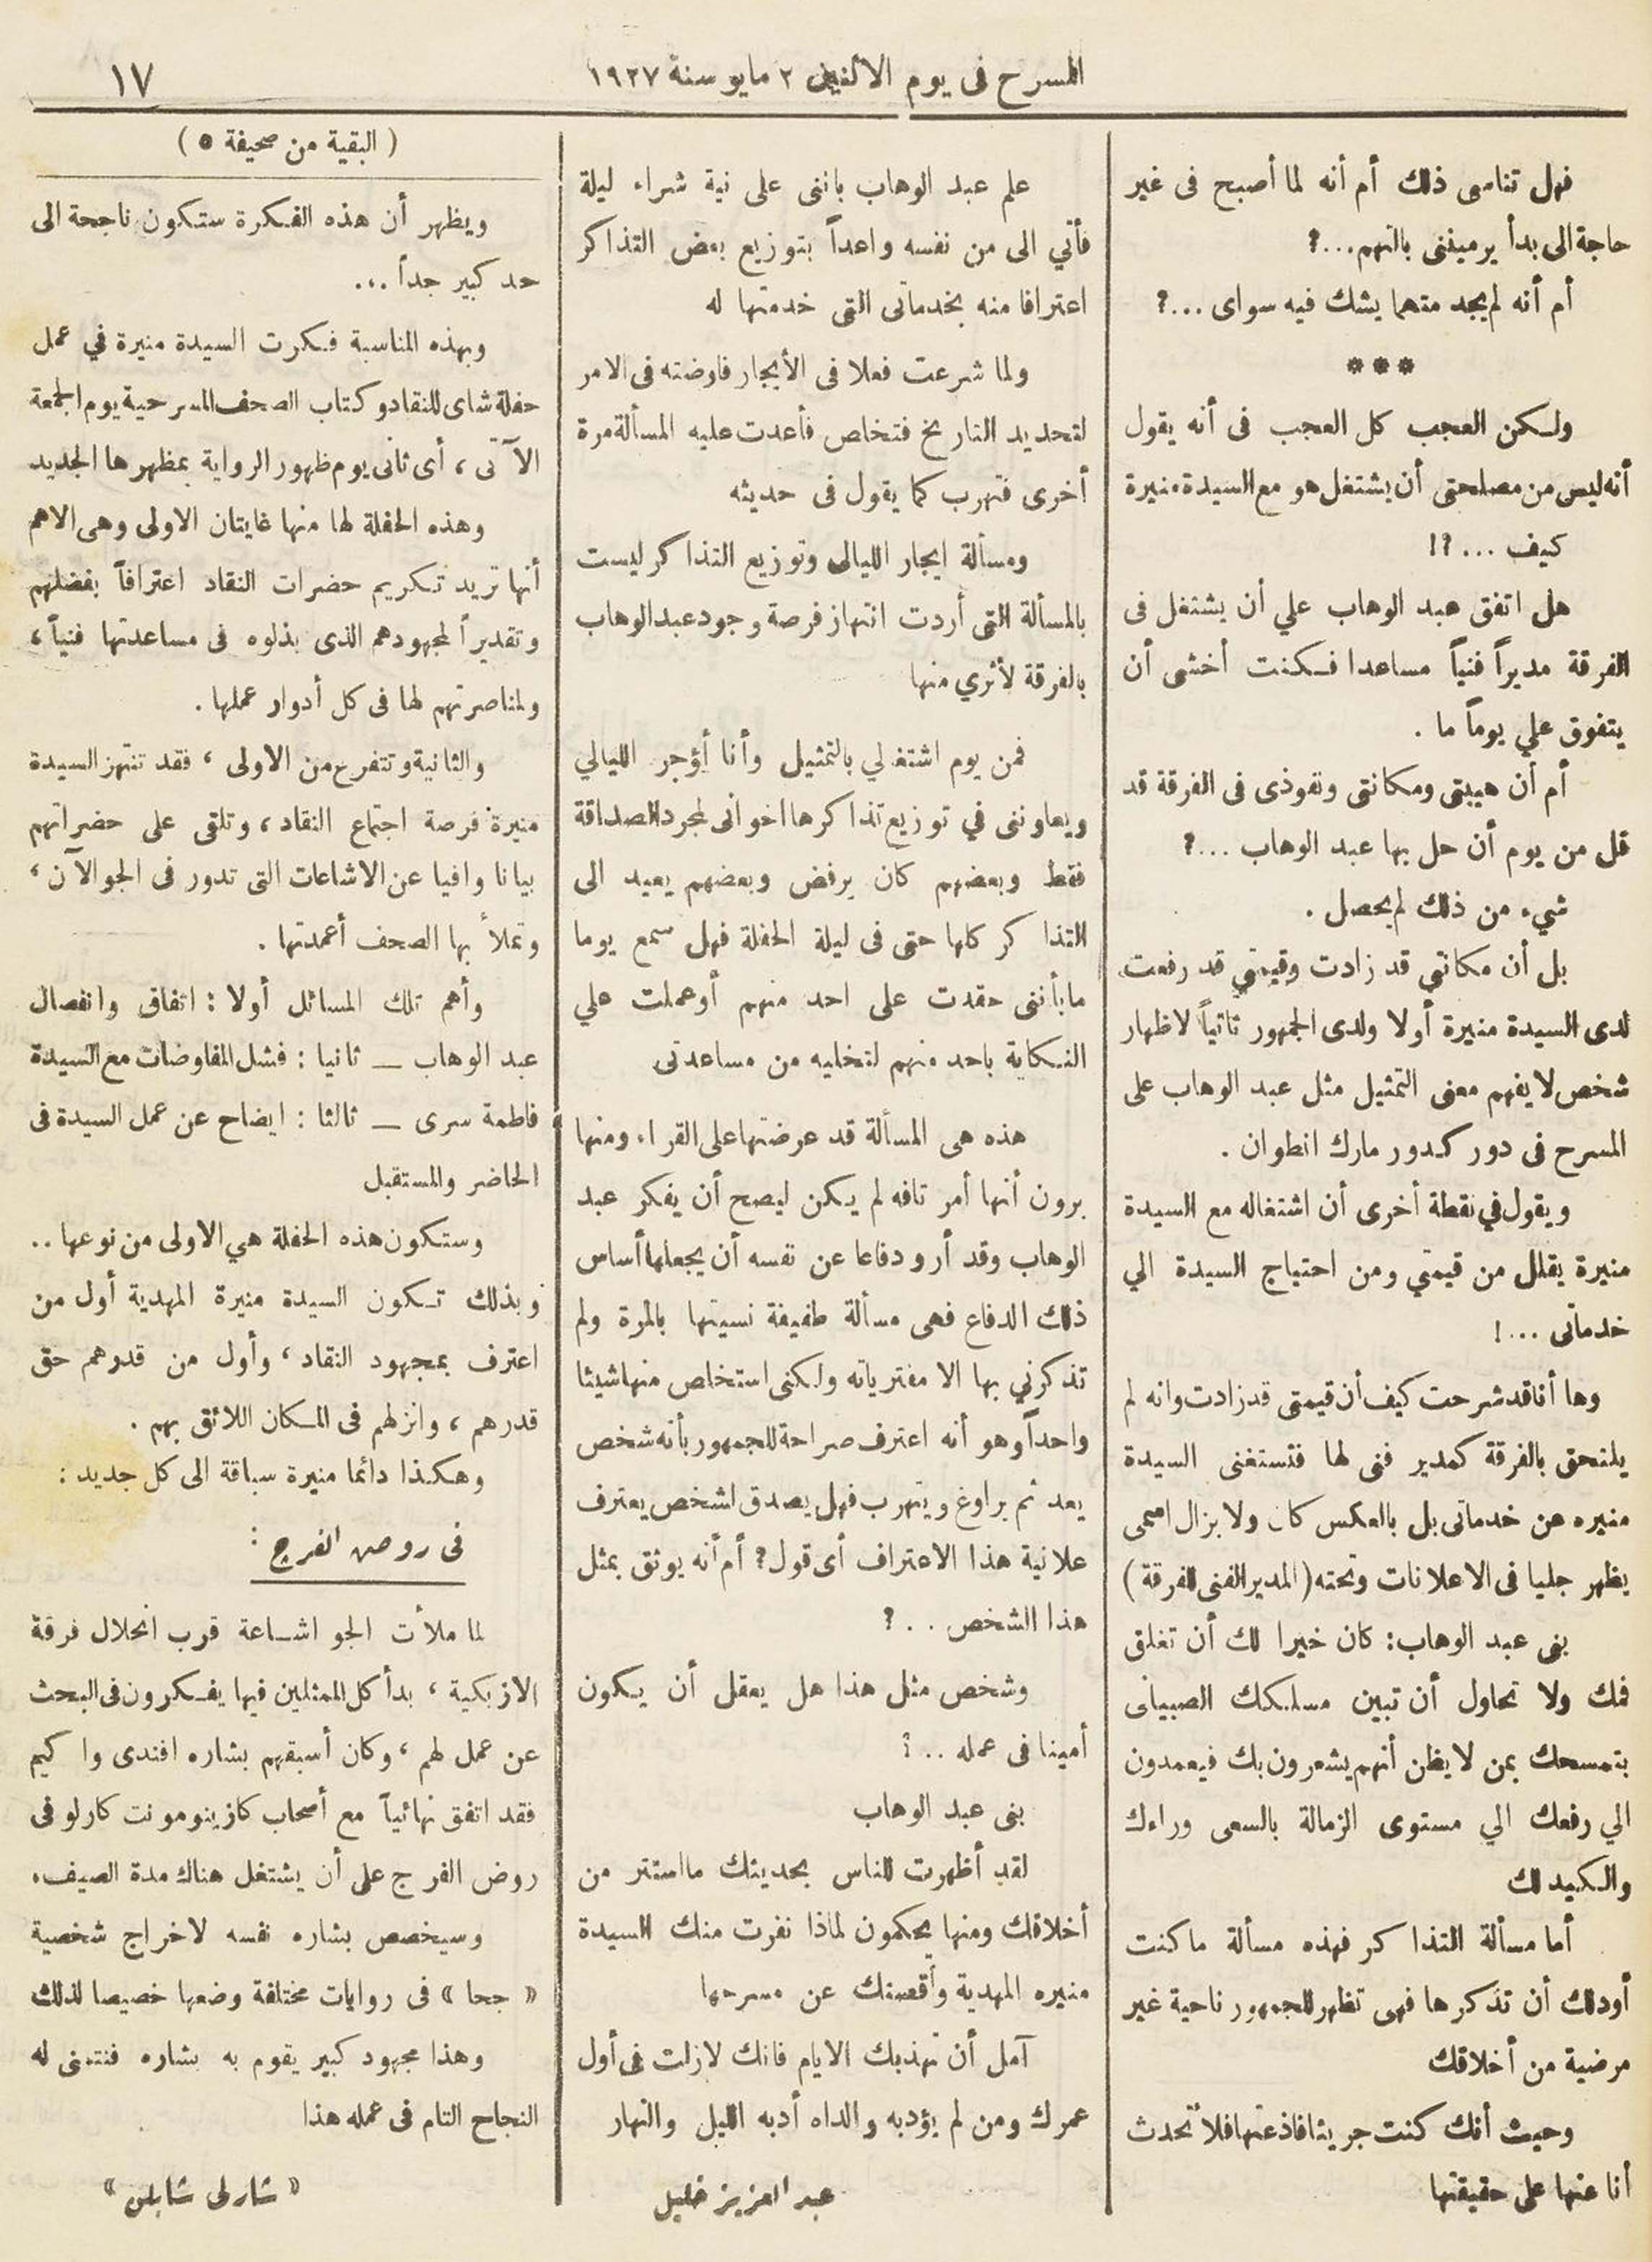 المسرح فى يوم الاثنين ٢ مايو سنة ١٩٢٧
١٧
فهل تناسى ذلك أم أنه لما أصبح فى غير
حاجة الى بدأ يرميننى بالتهم...؟
أم أنه لم يجد متهما يشك فيه سواى ...؟
***
ولكن العجب كل العجب فى أنه يقول
أنه ليس من مصلحتى أن يشتغل هو مع السيدة منيرة
كيف ...؟!
هل اتفق عبد الوهاب علي أن يشتغل فى
الفرقة مديراً فنياً مساعدا فكنت أخشى أن
يتفوق علي يوماً ما .
أم أن هيبتى ومكانتى ونفوذى فى الفرقة قد
قل من يوم أن حل بها عبد الوهاب ...؟
شيء من ذلك لم يحصل .
بل أن مكانتى قد زادت وقيمتي قد رفعت
لدى السيدة منيرة أولا ولدى الجمهور ثانياً لاظهار
شخص لا يفهم معنى التمثيل مثل عبد الوهاب على
المسرح فى دور كدور مارك انطوان .
ويقول في نقطة أخرى أن اشتغاله مع السيدة
منيرة يقلل من قيمتي ومن احتياج السيدة الي
خدماتى ...!
وها أنا قد شرحت كيف أن قيمتى قد زادت وانه لم
يلتحق بالفرقة كمدير فنى لها فتستغنى السيدة
منيره عن خدماتى بل بالعكس كان ولا يزال اسمى
يظهر جليا فى الاعلانات وتحته (المدير الفنى للفرقة)
بنى عبد الوهاب: كان خيرا لك أن تغلق
فمك ولا تحاول أن تبين مسلكك الصبيانى
بتمسحك بمن لا يظن أنهم يشعرون بك فيعمدون
الي رفعك الي مستوى الزمالة بالسعى وراءك
والكيد لك
أما مسألة التذاكر فهذه مسألة ما كنت
أود لك أن تذكرها فهى تظهر للجمهور ناحية غير
مرضية من أخلاقك
وحيث أنك كنت جريئا فاذعتها فلأتحدث
أنا عنها على حقيقتها
علم عبد الوهاب باننى على نية شراء ليلة
فأتي الى من نفسه واعداً بتوزيع بعض التذاكر
اعترافا منه بخدماتى التى خدمتها له
ولما شرعت فعلا فى الأيجار فاوضته فى الامر
لتحديد التاريخ فتخاص فأعدت عليه المسألة مرة
أخرى فتهرب كما يقول فى حديثه
ومسألة ايجار الليالى وتوزيع التذاكر ليست
بالمسألة التى أردت انتهاز فرصة وجود عبد الوهاب
بالفرقة لأثري منها
فمن يوم اشتغالي بالتمثيل وأنا أؤجر الليالي
ويعاوننى في توزيع تذاكرها اخوانى لمجرد الصداقة
فقط وبعضهم كان يرفض وبعضهم يعيد الى
التذاكر كلها حتى فى ليلة الحفلة فهل سمع يوما
ما بأننى حقدت على احد منهم أو عملت علي
النكاية باحد منهم لتخليه من مساعدتى
هذه هى المسألة قد عرضتها على القراء ومنها
يرون أنها أمر تافه لم يكن ليصح أن يفكر عبد
الوهاب وقد أرو دفاعا عن نفسه أن يجعلها أساس
ذلك الدفاع فهى مسألة طفيفة نسيتها بالمرة ولم
تذكرني بها الا مفترياته ولكنى استخاص منها شيئا
واحداً وهو أنه اعترف صراحة للجمهور بأنه شخص
يعد ثم يراوغ ويتهرب فهل يصدق لشخص يعترف
علانية هذا الاعتراف أى قول؟ أم أنه يوثق بمثل
هذا الشخص ..؟
وشخص مثل هذا هل يعقل أن يكون
أمينا فى عمله ..؟
بنى عبد الوهاب
لقد أظهرت للناس بحديثك ما استتر من
أخلاقك ومنها يحكمون لماذا نفرت منك السيدة
منيره المهدية وأقصتك عن مسرحها
آمل أن تهذبك الايام فانك لازلت فى أول
عمرك ومن لم يؤدبه والداه أدبه الليل والنهار
عبد العزيز خليل
(البقية من صحيفة ٥)
ويظهر أن هذه الفكرة ستكون ناجحة الى
حد كبير جداً ...
وبهذه المناسبة فكرت السيدة منيرة في عمل
حفلة شاى للنقاد وكتاب الصحف المسرحية يوم الجمعة
الآتى ، أى ثانى يوم ظهور الرواية بمظهرها الجديد
وهذه الحفلة لها منها غايتان الاولى وهى الاهم
أنها تريد تكريم حضرات النقاد اعترافاً بفضلهم
وتقديراً لمجهودهم الذى بذلوه فى مساعدتها فنياً ،
ولمناصرتهم لها فى كل أدوار عملها .
والثانية وتتفرع من الاولى ، فقد تنتهز السيدة
منيرة فرصة اجتماع النقاد ، وتلقى على حضراتهم
بيانا وافيا عن الاشاعات التى تدور فى الجو الآن ،
وتملأ بها الصحف أعمدتها .
وأهم تلك المسائل أولا : اتفاق وانفصال
عبد الوهاب — ثانيا : فشل المفاوضات مع السيدة
فاطمة سرى — ثالثا : ايضاح عن عمل السيدة فى
الحاضر والمستقبل
وستكون هذه الحفلة هي الاولى من نوعها ..
وبذلك تكون السيدة منيرة المهدية أول من
اعترف بمجهود النقاد ، وأول من قدرهم حق
قدرهم ، وانزلهم فى المكان اللائق بهم .
وهكذا دائما منيرة سباقة الى كل جديد :
فى روض الفرج :
لما ملأت الجو اشاعة قرب انحلال فرقة
الازبكية ، بدأ كل الممثلين فيها يفكرون فى البحث
عن عمل لهم ، وكان أسبقهم بشاره افندى واكيم
فقد اتفق نهائياً مع أصحاب كازينو مونت كارلو فى
روض الفرج على أن يشتغل هناك مدة الصيف.
وسيخصص بشاره نفسه لاخراج شخصية
« جحا » فى روايات مختلفة وضعها خصيصا لذلك
وهذا مجهود كبير يقوم به بشاره فنتمنى له
النجاح التام فى عمله هذا
« شارلى شابلن »